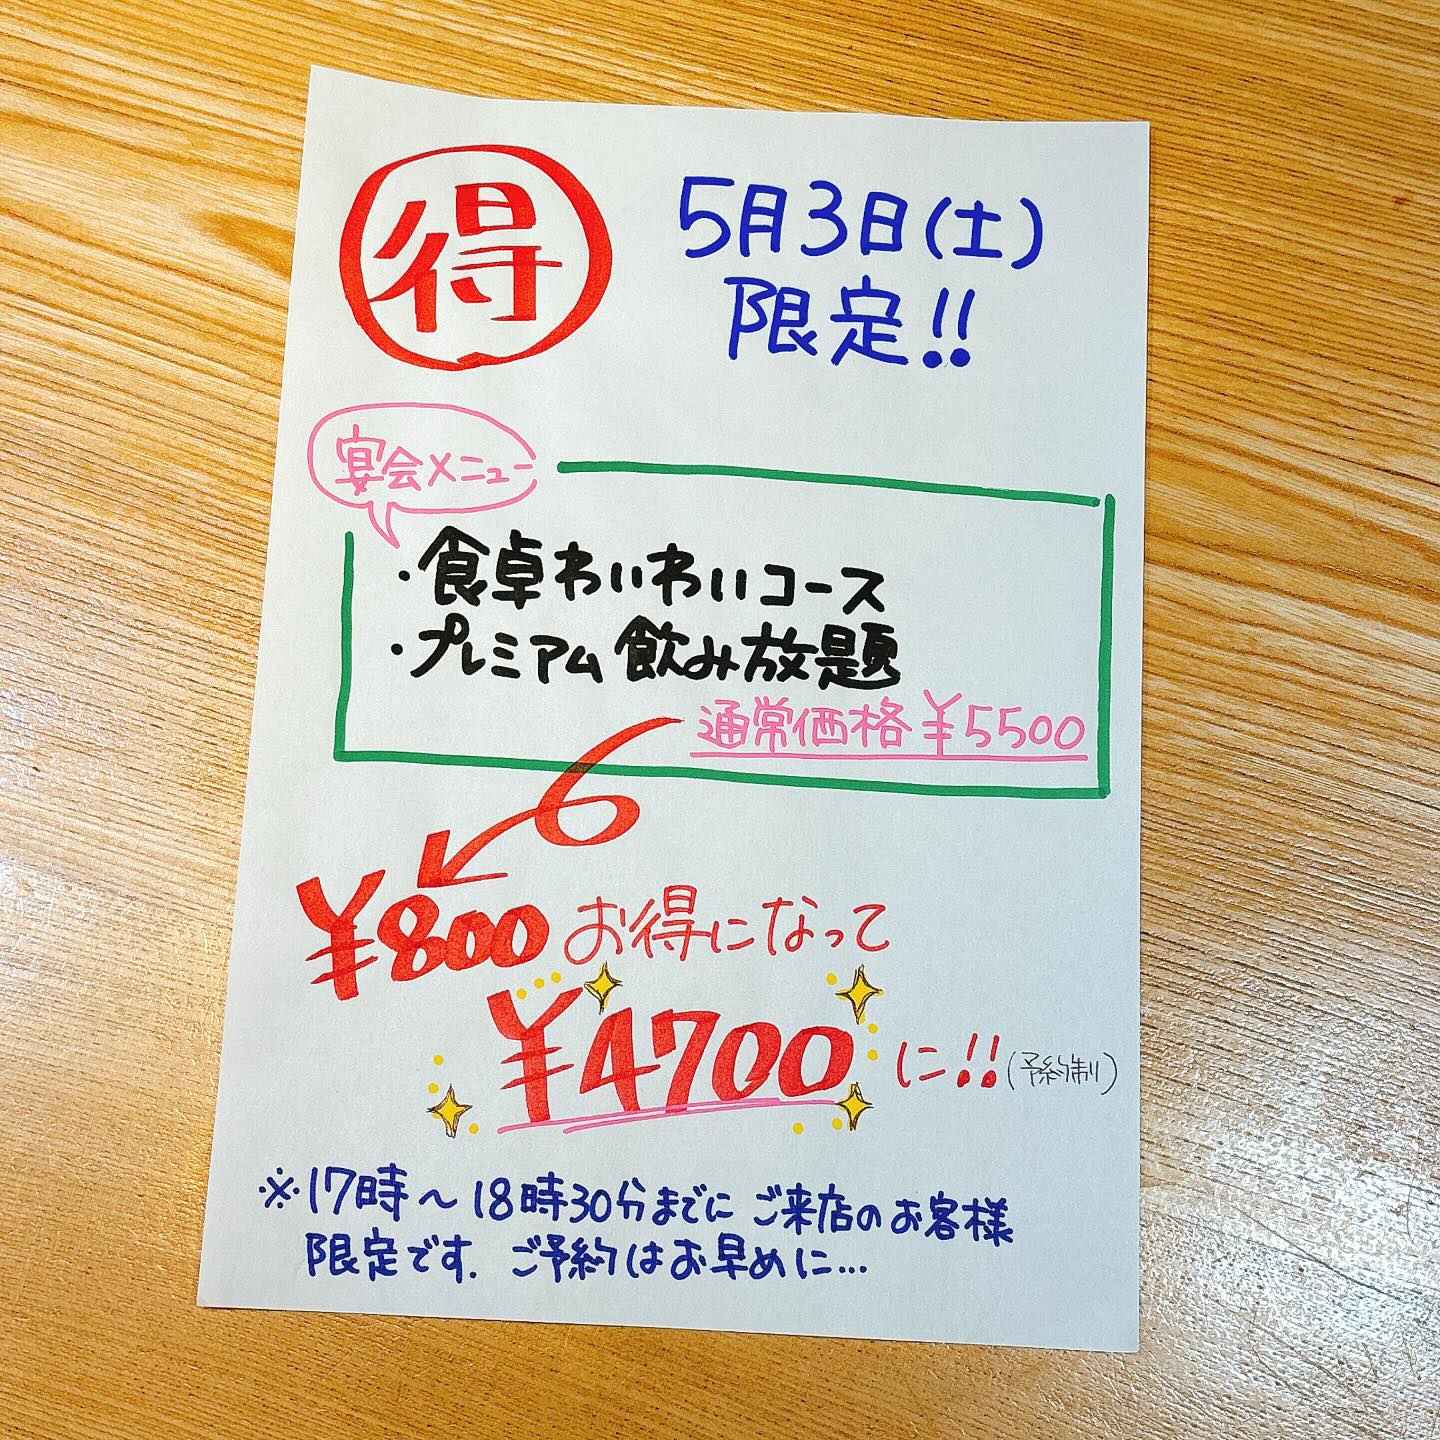 得
5月3日(土)
限定!!
宴会メニュー
・食卓わいわいコース
・プレミアム飲み放題
通常価格¥5500
¥800お得になって
¥4700に!!(予約制)
※17時〜18時30分までにご来店のお客様
限定です. ご予約はお早めに…